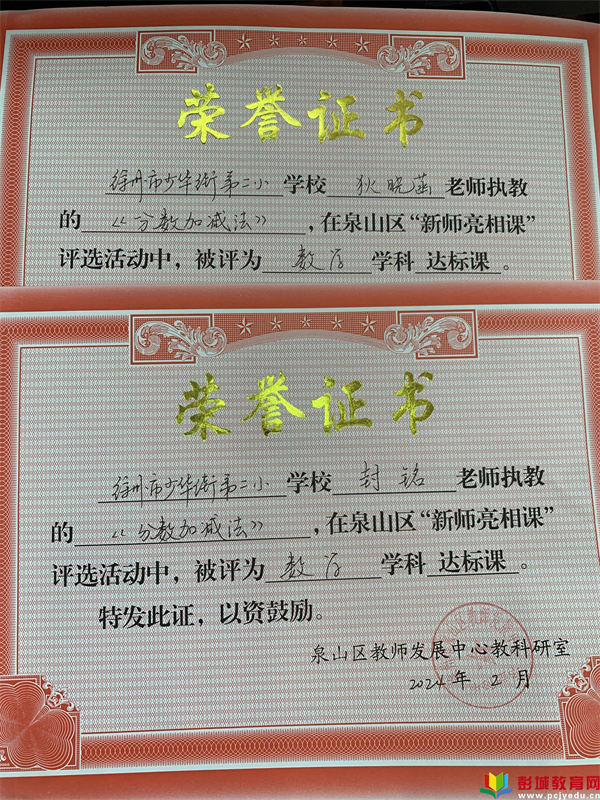 荣誉证书
徐州市少华街第二小学校 狄晓菡 老师执教
的《分数加减法》，在泉山区“新师亮相课”
评选活动中，被评为 数学 学科 达标课。
荣誉证书
徐州市少华街第二小学校 封铭 老师执教
的《分数加减法》，在泉山区“新师亮相课”
评选活动中，被评为 数学 学科 达标课。
特发此证，以资鼓励。
泉山区教师发展中心教科研室
2024年2月
彭城教育网
www.pcjyedu.cn